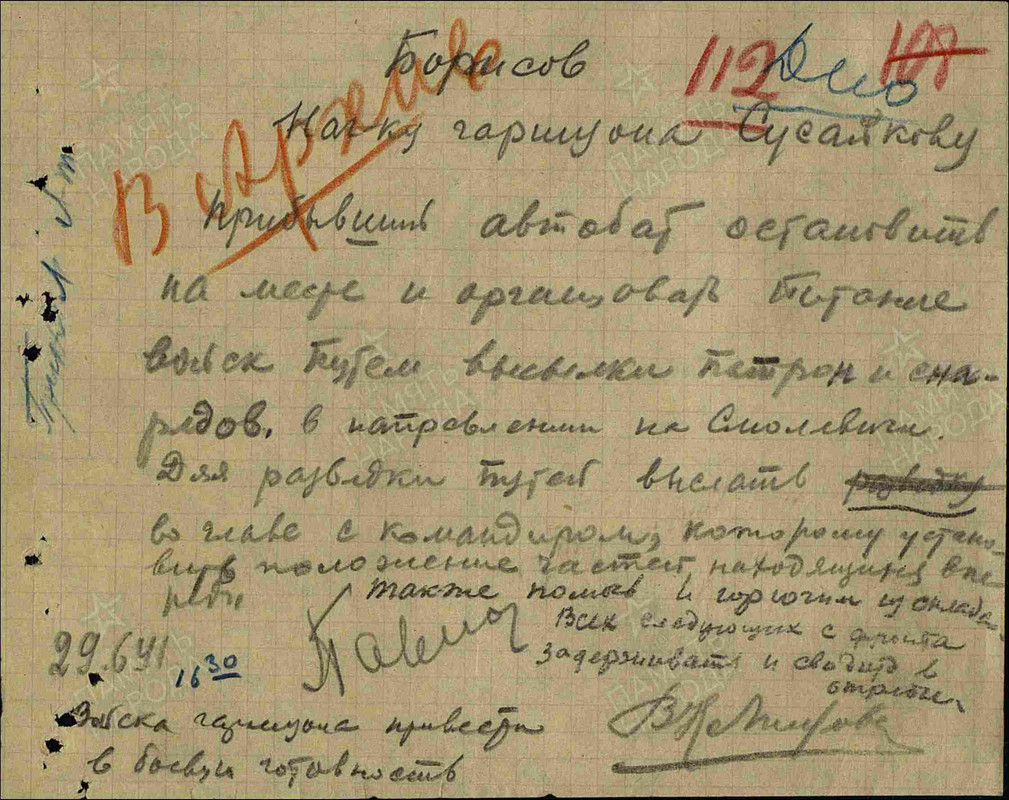 Борисов
112 108
Дно
Нач-ку гарнизона Сусайкову
Прибывший автобат остановить
на месте и организовать питание
войск путем высылки патрон и сна-
рядов, в направлении на Смолевичи.
Для разведки путей выслать разведку
во главе с командиром, которому устано-
вить положение частей, находящихся впе
реди,
также помыв и горючим из складов
Всех следующих с фронта
задерживать и сводить в
отряды.
Павлов
29.6.41
16 30
Войска гарнизона привести
в боевую готовность
ПАМЯТЬ
НАРОДА